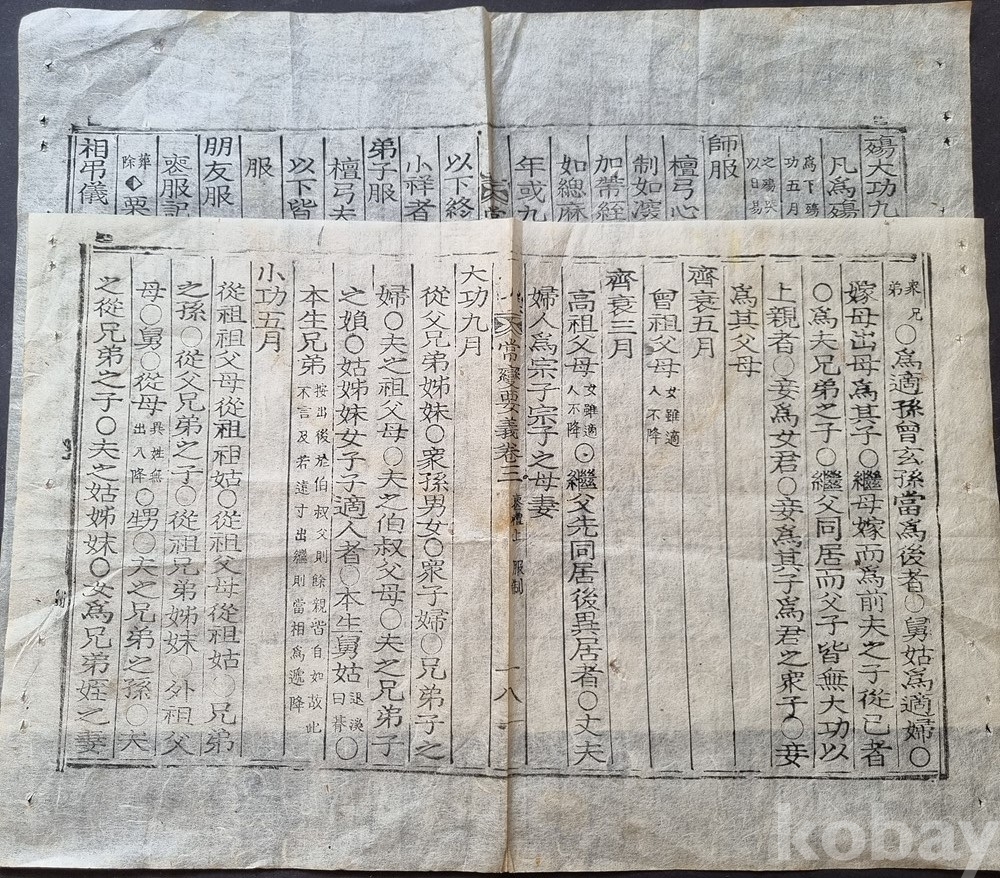 殤大功九
凡爲殤
爲下殤
功五月
之殤哭
以日易
師服
檀弓心
制如深
加帶絰
如緦麻
年或九
以下終
小祥者
弟子服
檀弓夫
以下皆
服
朋友服
喪服記
葬除栗
相弔儀
衆兄弟○爲適孫曾玄孫當爲後者○舅姑爲適婦○
嫁母出母爲其子○繼母嫁而爲前夫之子從己者
○爲夫兄弟之子○繼父同居而父子皆無大功以
上親者○妾爲女君○妾爲其子爲君之衆子○妾
爲其父母
齊衰五月
曾祖父母女雖適人不降
齊衰三月
高祖父母女雖適人不降○繼父先同居後異居者○丈夫
婦人爲宗子宗子之母妻
常變要義卷三 喪禮上 服制 十八
大功九月
從父兄弟姊妹○衆孫男女○衆子婦○兄弟子之
婦○夫之祖父母○夫之伯叔父母○夫之兄弟子
之婦○姑姊妹女子子適人者○本生舅姑退溪曰朞○
本生兄弟按出後於伯叔父則餘親皆自如故此不言及若遠寸出繼則當相爲遞降
小功五月
從祖祖父母從祖祖姑○從祖父母從祖姑○兄弟
之孫○從父兄弟之子○從祖兄弟姊妹○外祖父
母○舅○從母異姓無出入降○甥○夫之兄弟之孫○夫
之從兄弟之子○夫之姑姊妹○女爲兄弟姪之妻
kobay